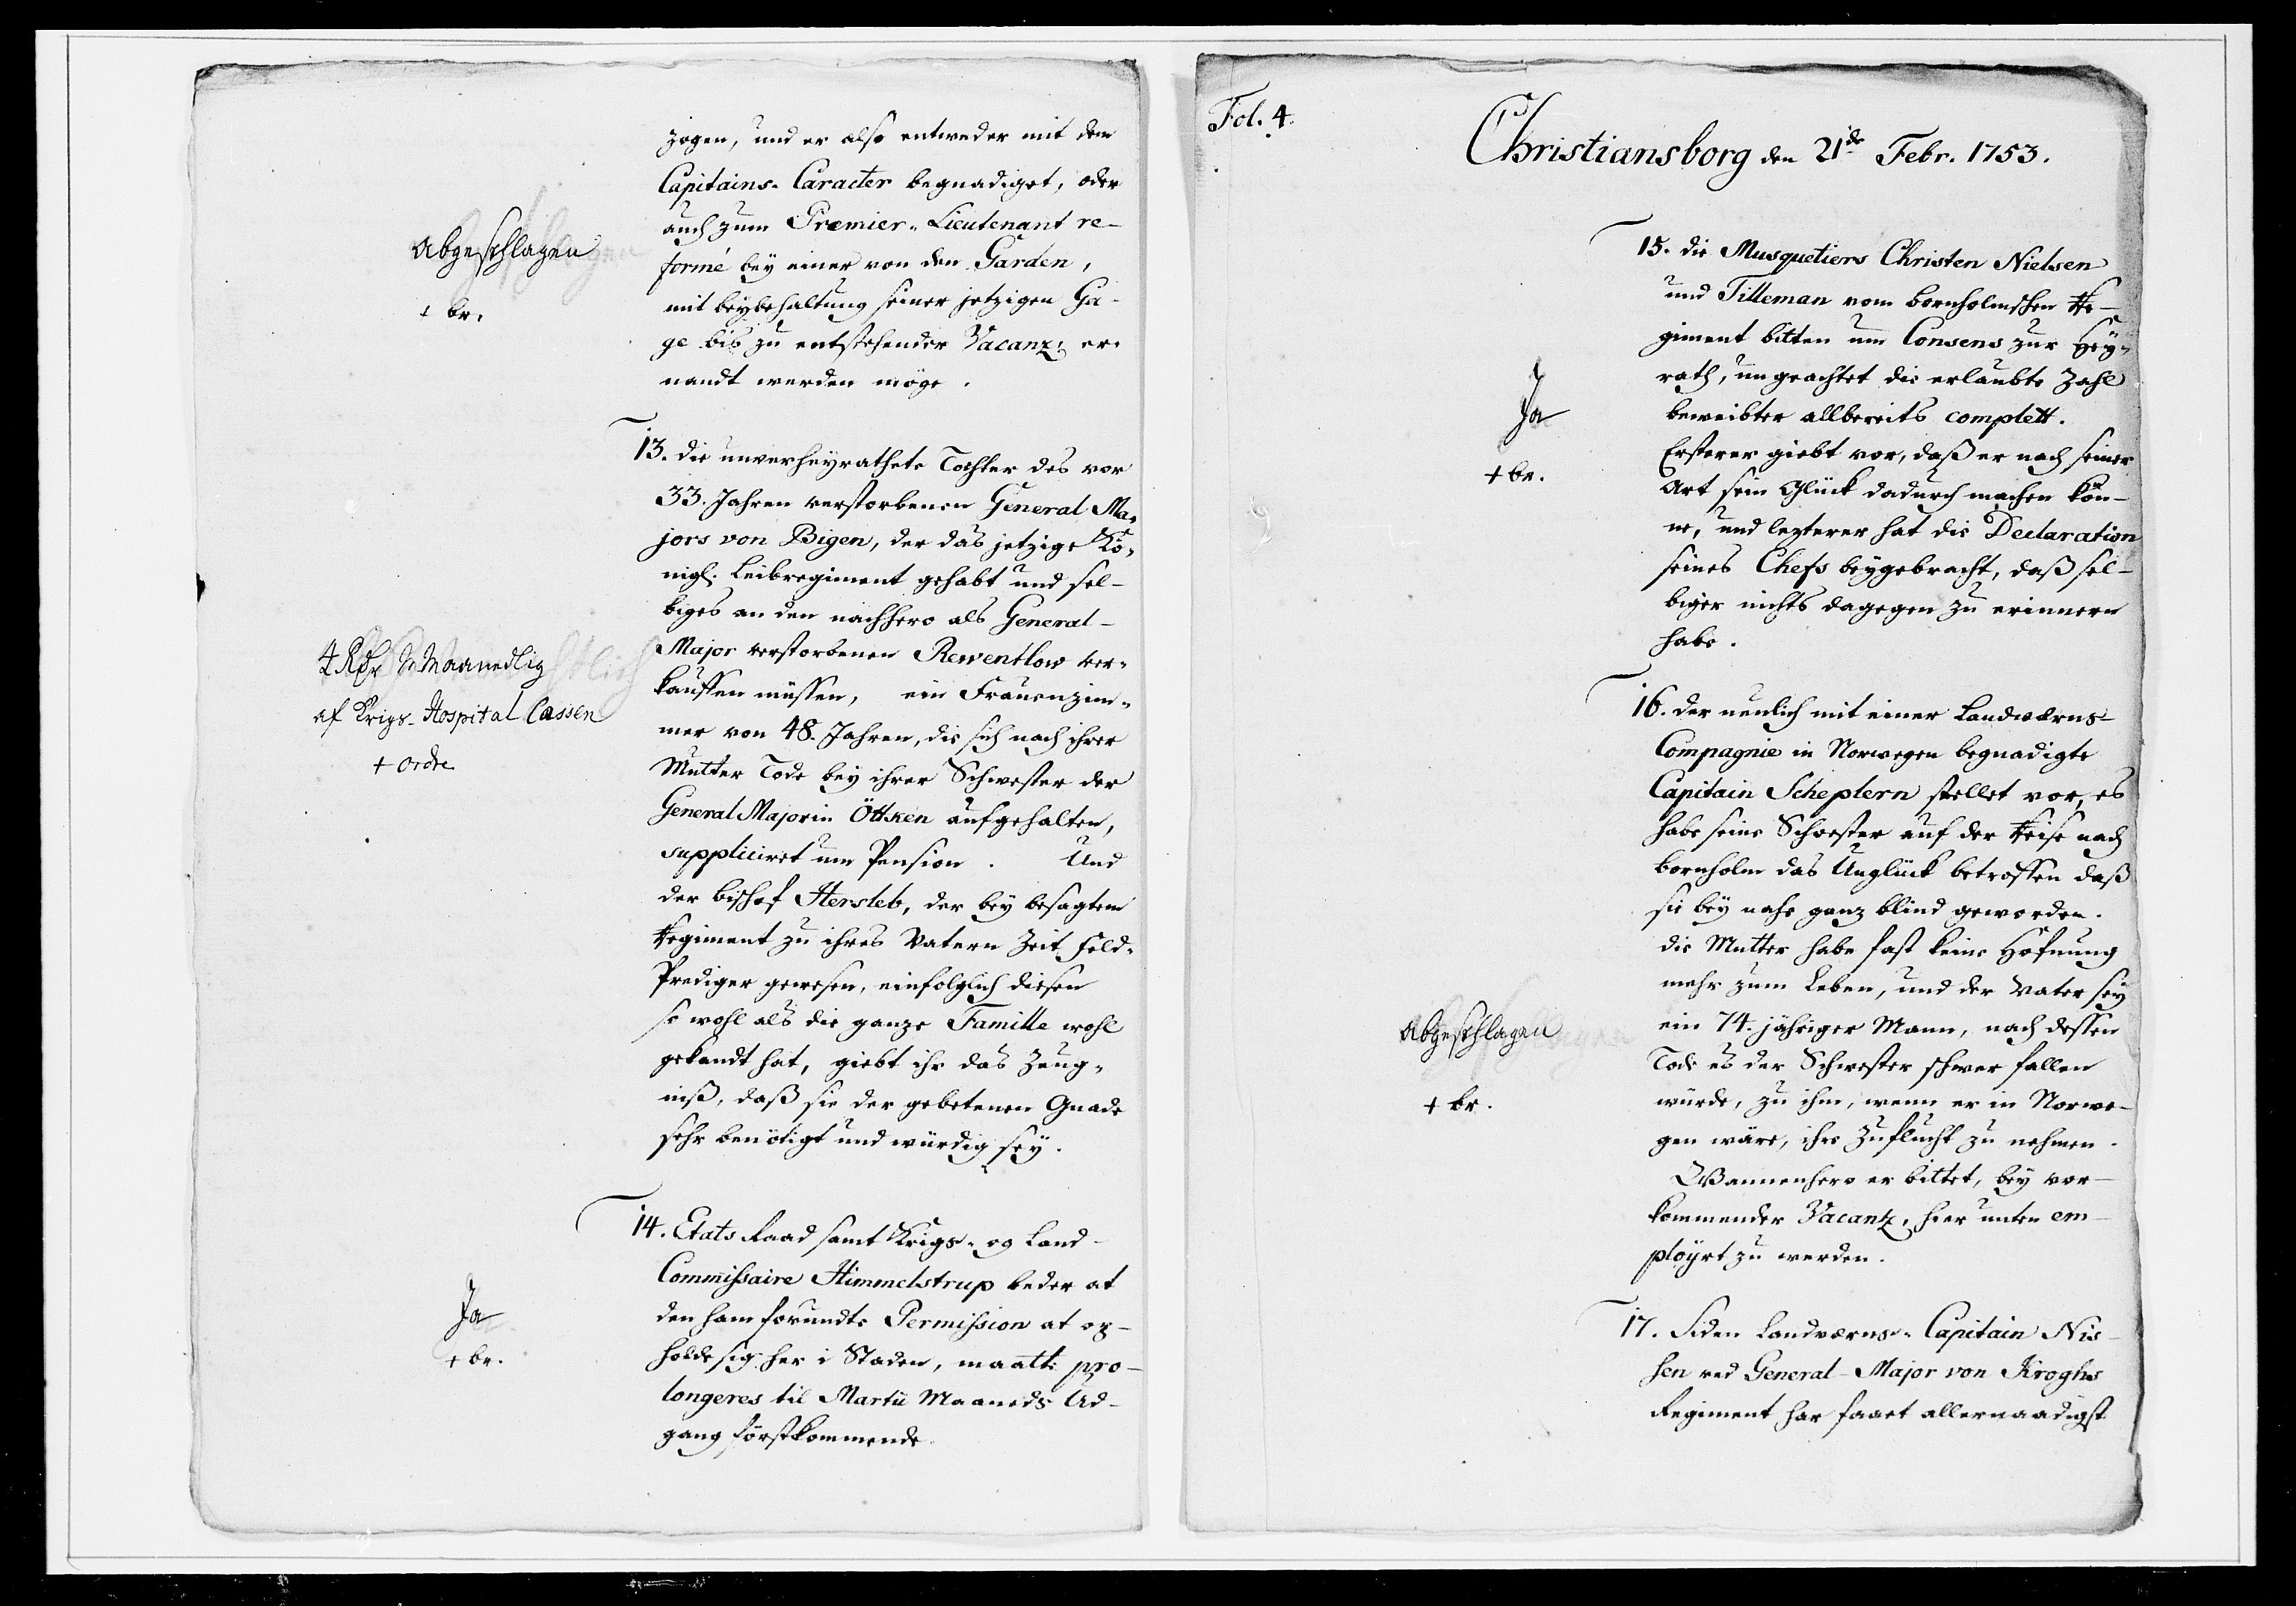 zogen, und er also entweder mit dem
Capitains-Caracter begnadiget, oder
auch zum Premier-Lieutenant re-
formé bey einer von den Garden,
mit beybehaltung seiner jetzigen Ga-
ge bis zu entstehender Vacanz, er-
nandt werden möge.
Abgeschlagen
+ br.
13. die unverheyrathete Tochter des vor
33. Jahren verstorbenen General Ma-
jors von Bigen, der das jetzige Kö-
nigl. Leibregiment gehabt und sel-
biges an den nachhero als General-
Major verstorbenen Rewentlow ver-
kauffen müssen, ein Frauenzim-
mer von 48. Jahren, die sich nach ihrer
Mutter Tode bey ihrer Schwester der
General Majorin Öttken aufgehalten,
suppliciret um Pension. Und
der bischof Hersleb, der bey besagtem
Regiment zu ihres Vatern Zeit Feld-
Prediger gewesen, einfolglich diesen
so wohl als die ganze Famille wohl
gekandt hat, giebt ihr das Zeug-
niß, daß sie der gebetenen Gnade
sehr benötigt und würdig sey.
4 Rdr Maanedlig
af Krigs-Hospital Cassen
+ ordre
14. Etats Raad samt Krigs- og Land-
Commissaire Himmelstrup beder at
den ham forundte Permission at op-
holde sig her i Staden, maatte pro-
longeres til Martii Maaneds Ud-
gang förstkommende.
Ja
+ br.
Fol. 4.
Christiansborg den 21de Febr. 1753.
15. die Musquetiers Christen Nielsen
und Tilleman vom bornholmschen Re-
giment bitten um Consens zur Hey-
rath, ungeachtet die erlaubte Zahl
beweibter allbereits complett.
Ersterer giebt vor, daß er nach seiner
Art sein Glück dadurch machen kön-
ne, und lezterer hat die Declaration
seines Chefs beygebracht, daß sel-
biger nichts dagegen zu erinnern
habe.
Ja
+ br.
16. der neulich mit einer Landværns-
Compagnie in Norwegen begnadigte
Capitain Scheplern stellet vor, es
habe seine Schwester auf der Reise nach
bornholm das Unglück betroffen daß
sie bey nahe ganz blind geworden.
die Mutter habe fast keine Hofnung
mehr zum Leben, und der Vater sey
ein 74. jähriger Mann, nach dessen
Tode es der Schwester schwer fallen
würde, zu ihm, wenn er in Norwe-
gen wäre, ihre Zuflucht zu nehmen.
Wannenhero er bittet, bey vor-
kommender Vacanz, hier unten em-
ployrt zu werden.
Abgeschlagen
+ br.
17. Siden Landværns-Capitain Nis-
sen ved General-Major von Kroghs
Regiment har faaet allernaadigst